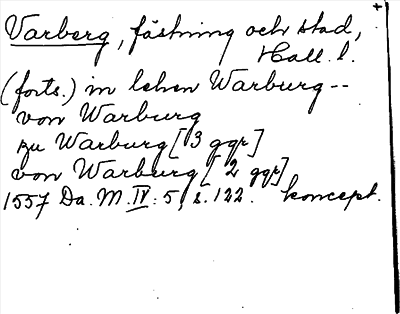 Varberg, fästning och stad,
Hall. l.
(forts.) in lehen Warburg--
von Warburg
zu Warburg [3 ggr]
von Warburg [2 ggr]
1557 Da. M. IV: 5, s. 122. koncept.